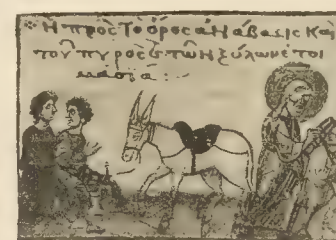 Η προς Το ορος ανάβασις και
του πυρος κ των ξύλων ετοι
μασία :